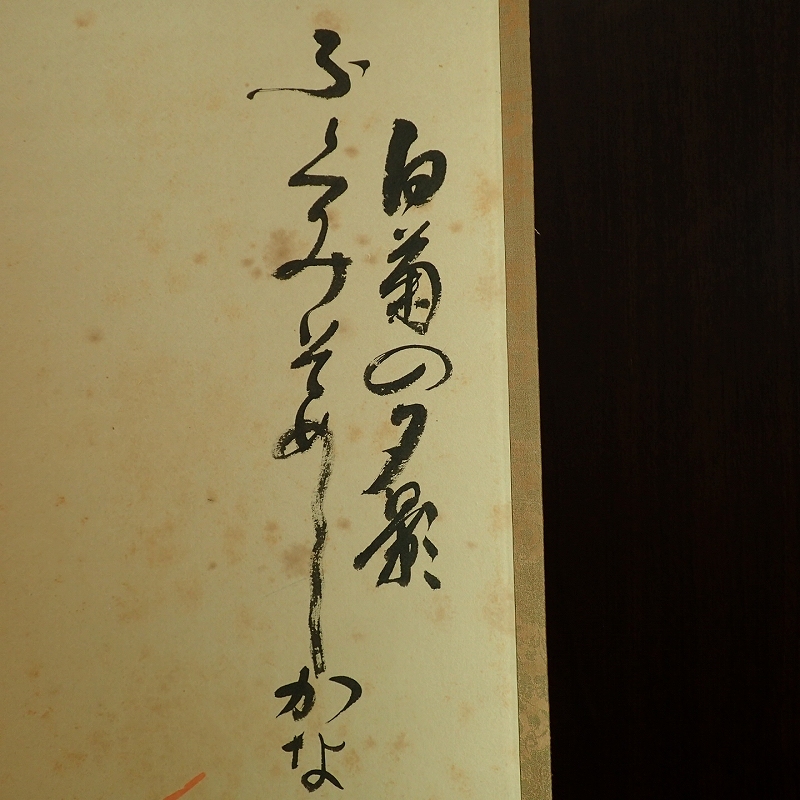 白菊の夕影
ふくみそめしかな